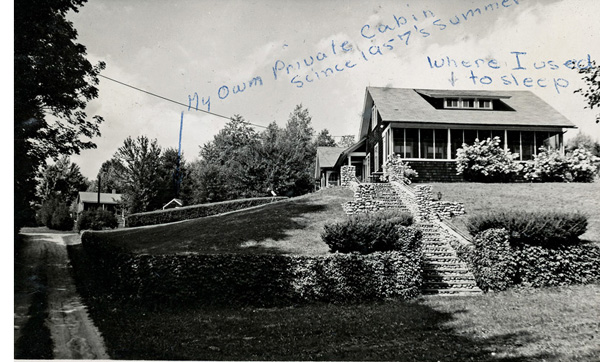 My Own Private Cabin
Scince 1957's summer
Where I used
to sleep